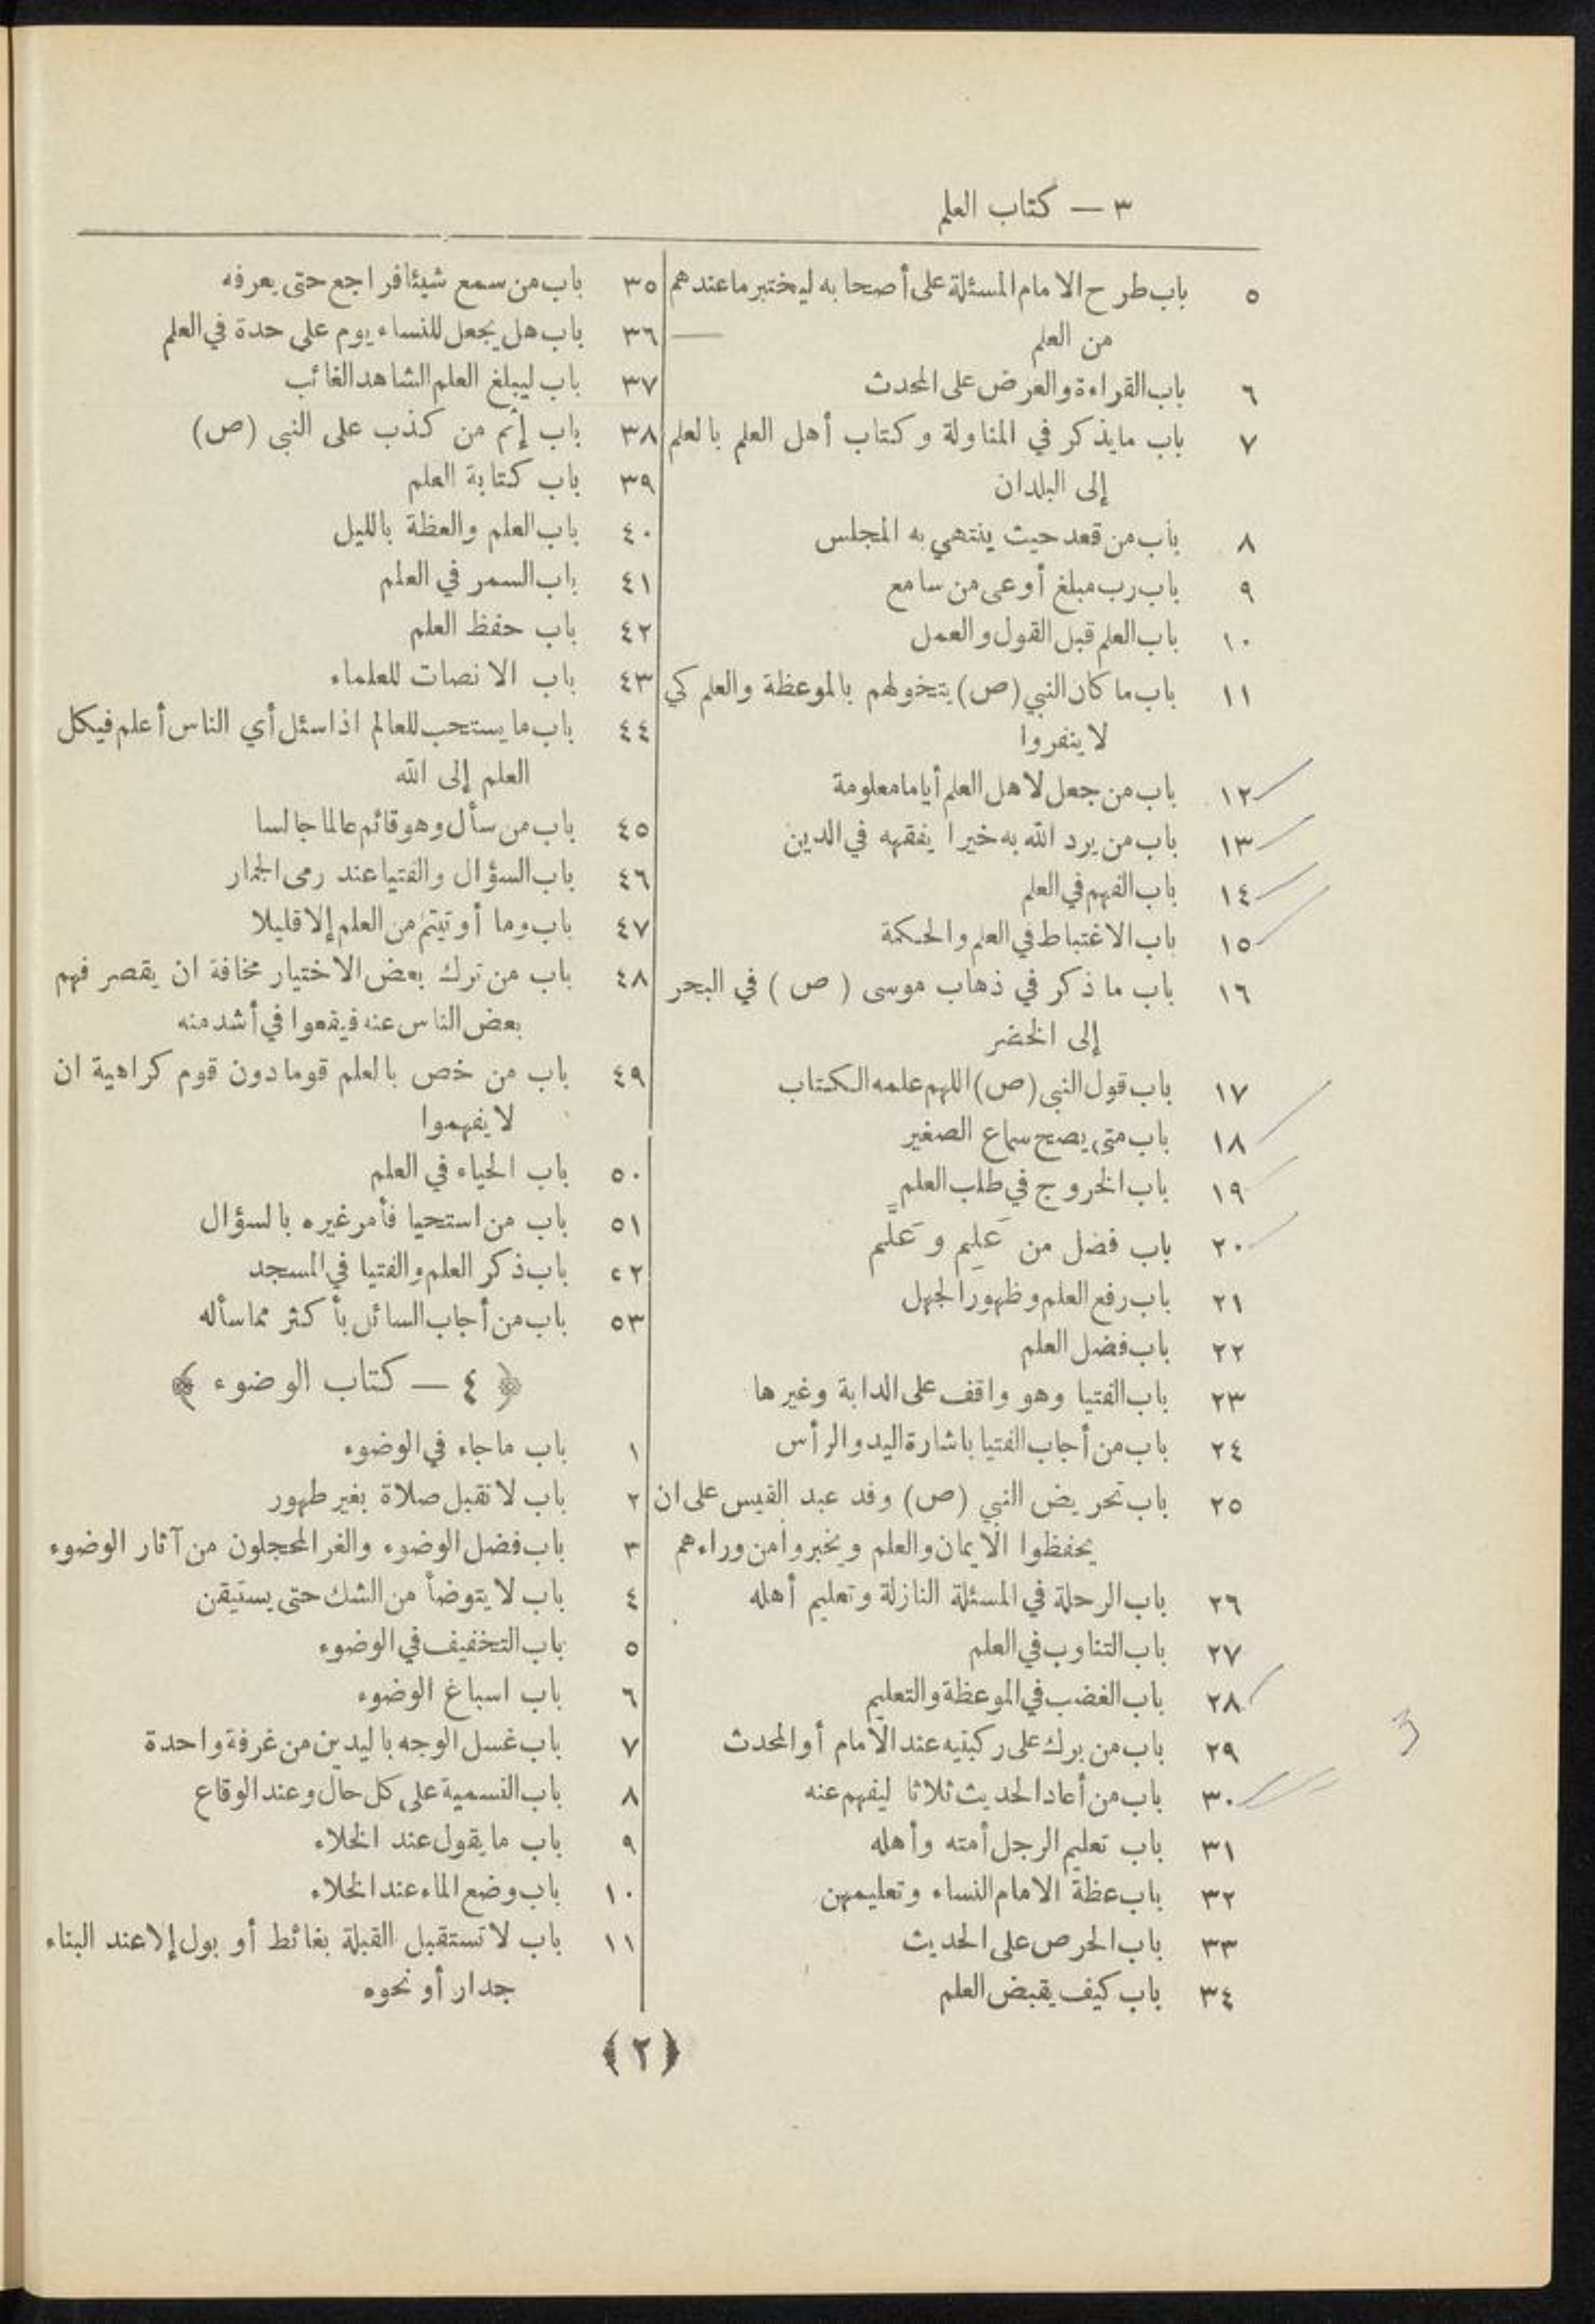 ٣ — كتاب العلم
٥ باب طرح الامام المسئلة على أصحابه ليختبر ما عندهم
من العلم
٦ باب القراءة والعرض على المحدث
٧ باب ما يذكر في المناولة وكتاب أهل العلم بالعلم
إلى البلدان
٨ باب من قعد حيث ينتهي به المجلس
٩ باب رب مبلغ أوعى من سامع
١٠ باب العلم قبل القول والعمل
١١ باب ما كان النبي (ص) يتخولهم بالموعظة والعلم كي
لا ينفروا
١٢ باب من جعل لاهل العلم أياما معلومة
١٣ باب من يرد الله به خيرا يفقهه في الدين
١٤ باب الفهم في العلم
١٥ باب الاغتباط في العلم والحكمة
١٦ باب ما ذكر في ذهاب موسى (ص) في البحر
إلى الخضر
١٧ باب قول النبي (ص) اللهم علمه الكتاب
١٨ باب متى يصح سماع الصغير
١٩ باب الخروج في طلب العلم
٢٠ باب فضل من عَلِم وعَلَّم
٢١ باب رفع العلم وظهور الجهل
٢٢ باب فضل العلم
٢٣ باب الفتيا وهو واقف على الدابة وغيرها
٢٤ باب من أجاب الفتيا باشارة اليد والرأس
٢٥ باب تحريض النبي (ص) وفد عبد القيس على ان
يحفظوا الايمان والعلم ويخبروا من وراءهم
٢٦ باب الرحلة في المسئلة النازلة وتعليم أهله
٢٧ باب التناوب في العلم
٢٨ باب الغضب في الموعظة والتعليم
٢٩ باب من برك على ركبتيه عند الامام أو المحدث
٣٠ باب من أعاد الحديث ثلاثا ليفهم عنه
٣١ باب تعليم الرجل أمته وأهله
٣٢ باب عظة الامام النساء وتعليمهن
٣٣ باب الحرص على الحديث
٣٤ باب كيف يقبض العلم
٣٥ باب من سمع شيئا فراجع حتى يعرفه
٣٦ باب هل يجعل للنساء يوم على حدة في العلم
٣٧ باب ليبلغ العلم الشاهد الغائب
٣٨ باب إثم من كذب على النبي (ص)
٣٩ باب كتابة العلم
٤٠ باب العلم والعظة بالليل
٤١ باب السمر في العلم
٤٢ باب حفظ العلم
٤٣ باب الانصات للعلماء
٤٤ باب ما يستحب للعالم اذا سئل أي الناس أعلم فيكل
العلم إلى الله
٤٥ باب من سأل وهو قائم عالما جالسا
٤٦ باب السؤال والفتيا عند رمى الجمار
٤٧ باب وما أوتيتم من العلم إلا قليلا
٤٨ باب من ترك بعض الاختيار مخافة ان يقصر فهم
بعض الناس عنه فيقعوا في أشد منه
٤٩ باب من خص بالعلم قوما دون قوم كراهية ان
لا يفهموا
٥٠ باب الحياء في العلم
٥١ باب من استحيا فأمر غيره بالسؤال
٥٢ باب ذكر العلم والفتيا في المسجد
٥٣ باب من أجاب السائل بأكثر مما سأله
﴿ ٤ — كتاب الوضوء ﴾
١ باب ما جاء في الوضوء
٢ باب لا تقبل صلاة بغير طهور
٣ باب فضل الوضوء والغر المحجلون من آثار الوضوء
٤ باب لا يتوضأ من الشك حتى يستيقن
٥ باب التخفيف في الوضوء
٦ باب اسباغ الوضوء
٧ باب غسل الوجه باليدين من غرفة واحدة
٨ باب التسمية على كل حال وعند الوقاع
٩ باب ما يقول عند الخلاء
١٠ باب وضع الماء عند الخلاء
١١ باب لا تستقبل القبلة بغائط أو بول إلا عند البناء
جدار أو نحوه
﴿٢﴾